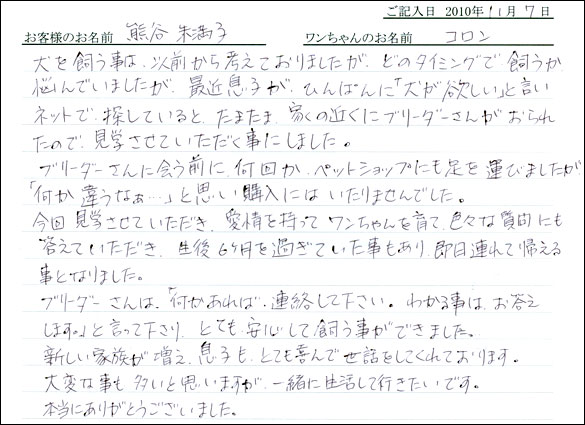 ご記入日 2010年11月7日
お客様のお名前 熊谷 朱満子 ワンちゃんのお名前 コロン
犬を飼う事は、以前から考えておりましたが、どのタイミングで飼うか
悩んでいましたが、最近息子が、ひんぱんに「犬が欲しい」と言い
ネットで探していると、たまたま、家の近くにブリーダーさんがおられ
たので、見学させていただく事にしました。
ブリーダーさんに会う前に、何回か、ペットショップにも足を運びましたが
「何か違うなぁ…」と思い購入にはいたりませんでした。
今回見学させていただき、愛情を持ってワンちゃんを育て、色々な質問にも
答えていただき、生後6ヶ月を過ぎていた事もあり、即日連れて帰える
事となりました。
ブリーダーさんは、「何かあれば、連絡して下さい。わかる事は、お答え
します。」と言って下さり、とても安心して飼う事ができました。
新しい家族が増え、息子も、とても喜んで世話をしてくれております。
大変な事も多いと思いますが、一緒に生活して行きたいです。
本当にありがとうございました。